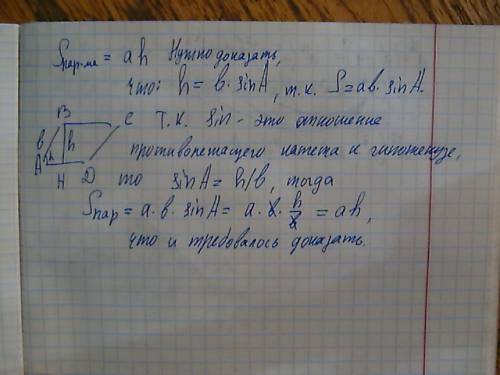 Sпар-ма = ah Нужно доказать,
что: h = b · sinA, т.к. S = ab · sinA.
B
C
b
h
A
H
D
Т.к. sin - это отношение
противолежащего катета к гипотенузе,
то sinA = h/b, тогда
Sпар = a · b · sinA = a · b · h/b = ah,
что и требовалось доказать.